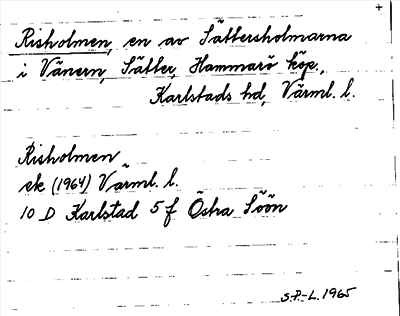 Risholmen, en av Sättersholmarna
i Vänern, Sätter, Hammarö köp.,
Karlstads hd, Värml. l.
Risholmen
ek (1964) Värml. l.
10 D Karlstad 5 f Östra Söön
S.P.-L. 1965